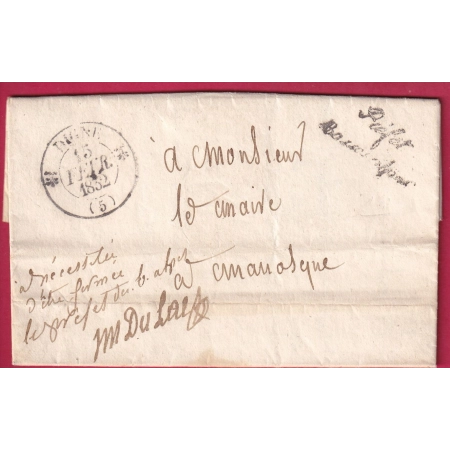 DIGNE
15
FEVR.
1832
(5)
Préfet
Basses Alpes
à Monsieur
le maire
à Manosque
a nécessité
d'être fermée
le préfet des b. alpes